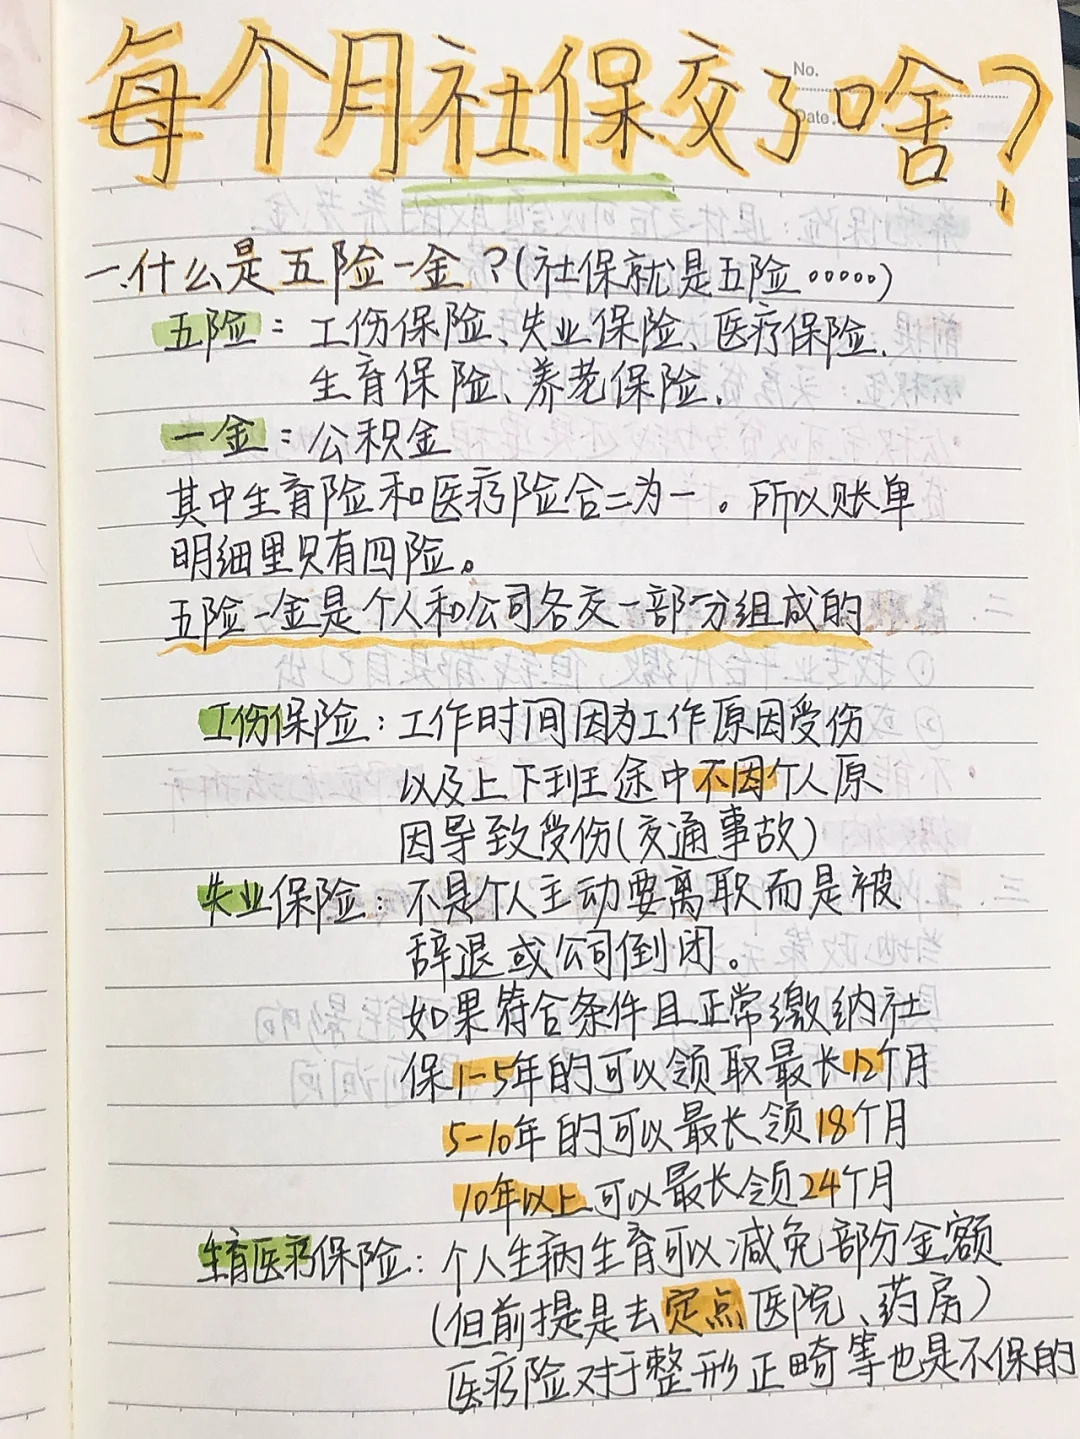 每个月社保交了啥?
No.
Date.
一.什么是五险一金?(社保就是五险......)
五险:工伤保险、失业保险、医疗保险、
生育保险、养老保险、
一金:公积金
其中生育险和医疗险合二为一。所以账单
明细里只有四险。
五险一金是个人和公司各交一部分组成的
工伤保险:工作时间因为工作原因受伤
以及上下班途中不因个人原
因导致受伤(交通事故)
失业保险:不是个人主动要离职而是被
辞退或公司倒闭。
如果符合条件且正常缴纳社
保1-5年的可以领取最长12个月
5-10年的可以最长领18个月
10年以上可以最长领24个月
生育医疗保险:个人生病生育可以减免部分金额
(但前提是去定点医院、药房)
医疗险对于整形正畸等也是不保的